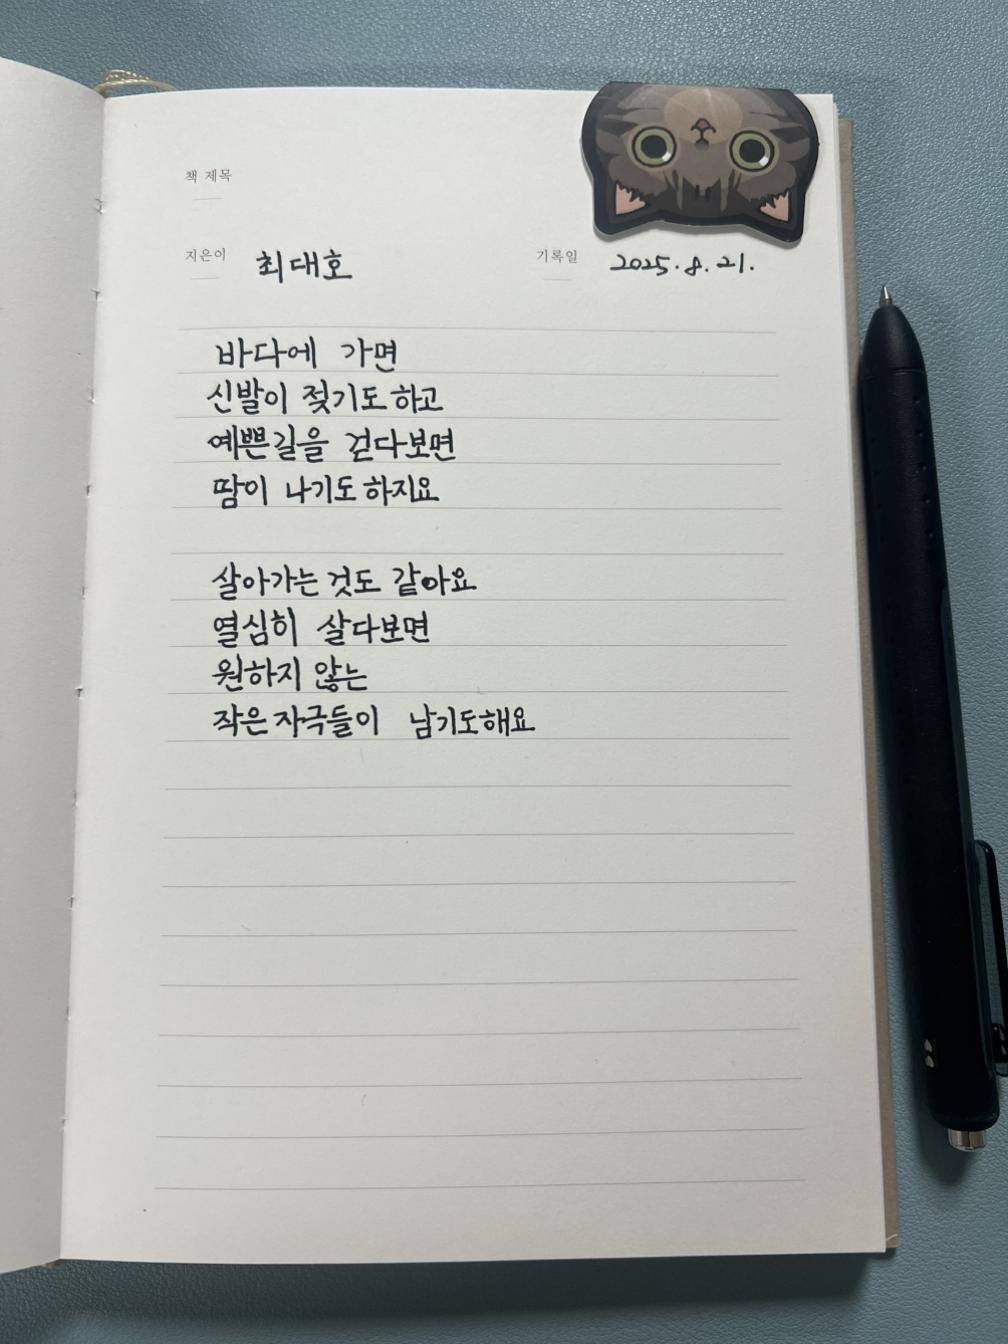 책 제목
지은이 최대호 기록일 2025.8.21.
바다에 가면
신발이 젖기도 하고
예쁜길을 걷다보면
땀이 나기도 하지요
살아가는 것도 같아요
열심히 살다보면
원하지 않는
작은 자극들이 남기도해요